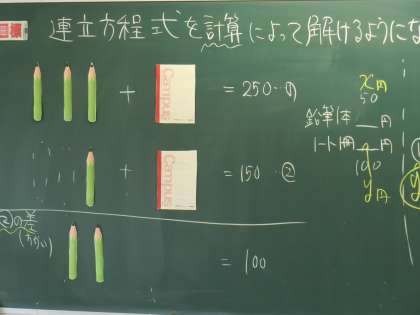 目標
連立方程式を計算によって解けるようにな
Campus
+ = 250 ・①
x円
50
鉛筆1本 円
ノート1冊 円
100
y円
Campus
+ = 150 ・②
= 100